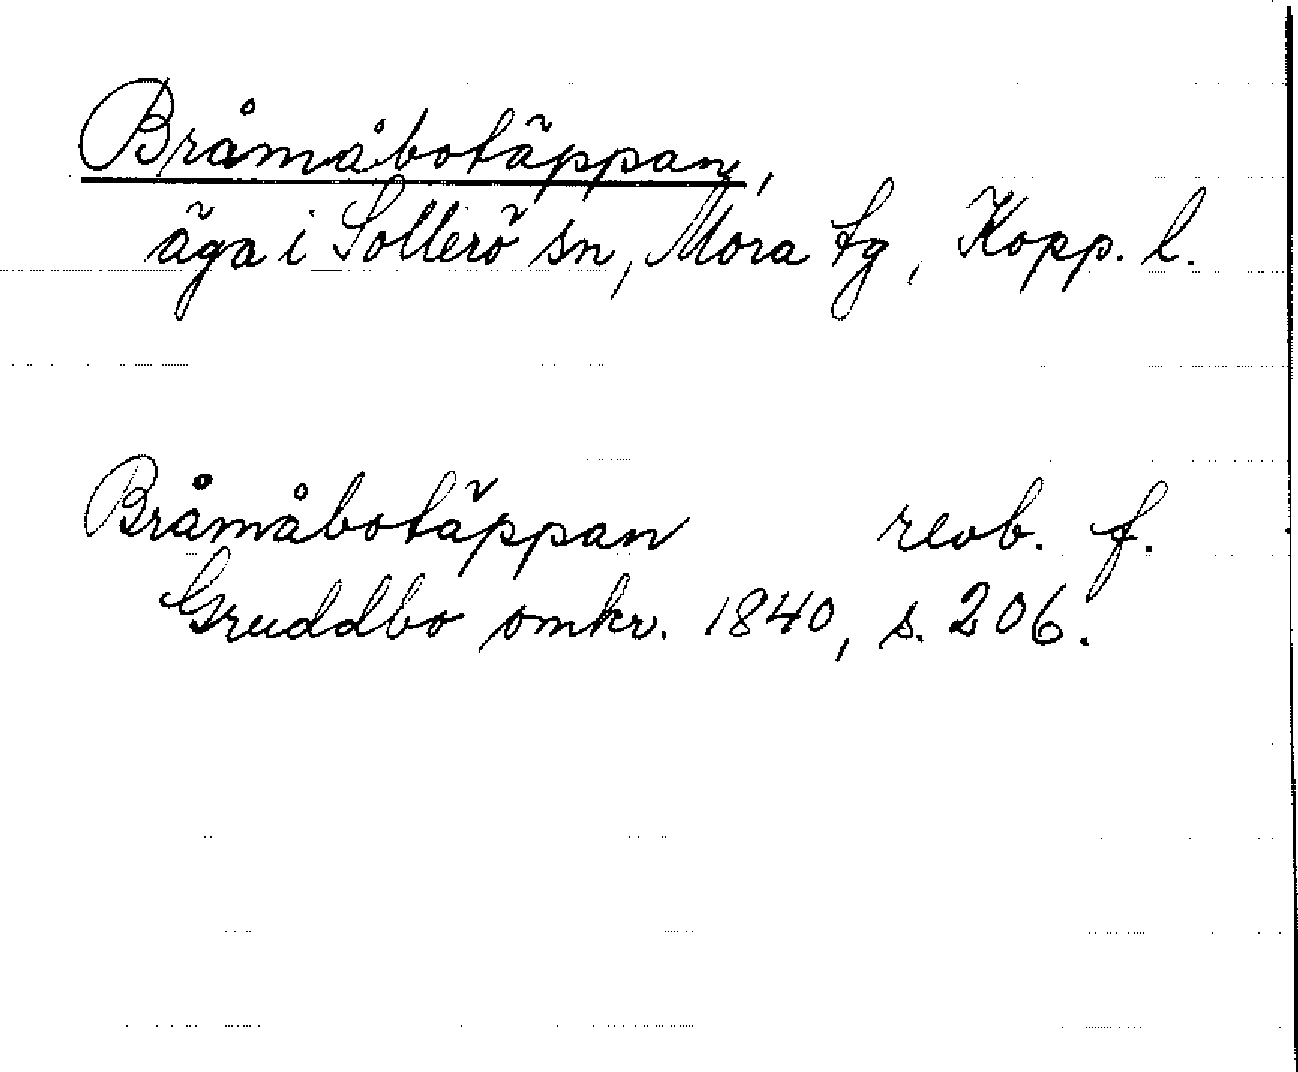 Bråmåbotäppan,
äga i Sollerö sn, Mora tg, Kopp. l.
Bråmåbotäppan revb. f.
Gruddbo omkr. 1840, s. 206.